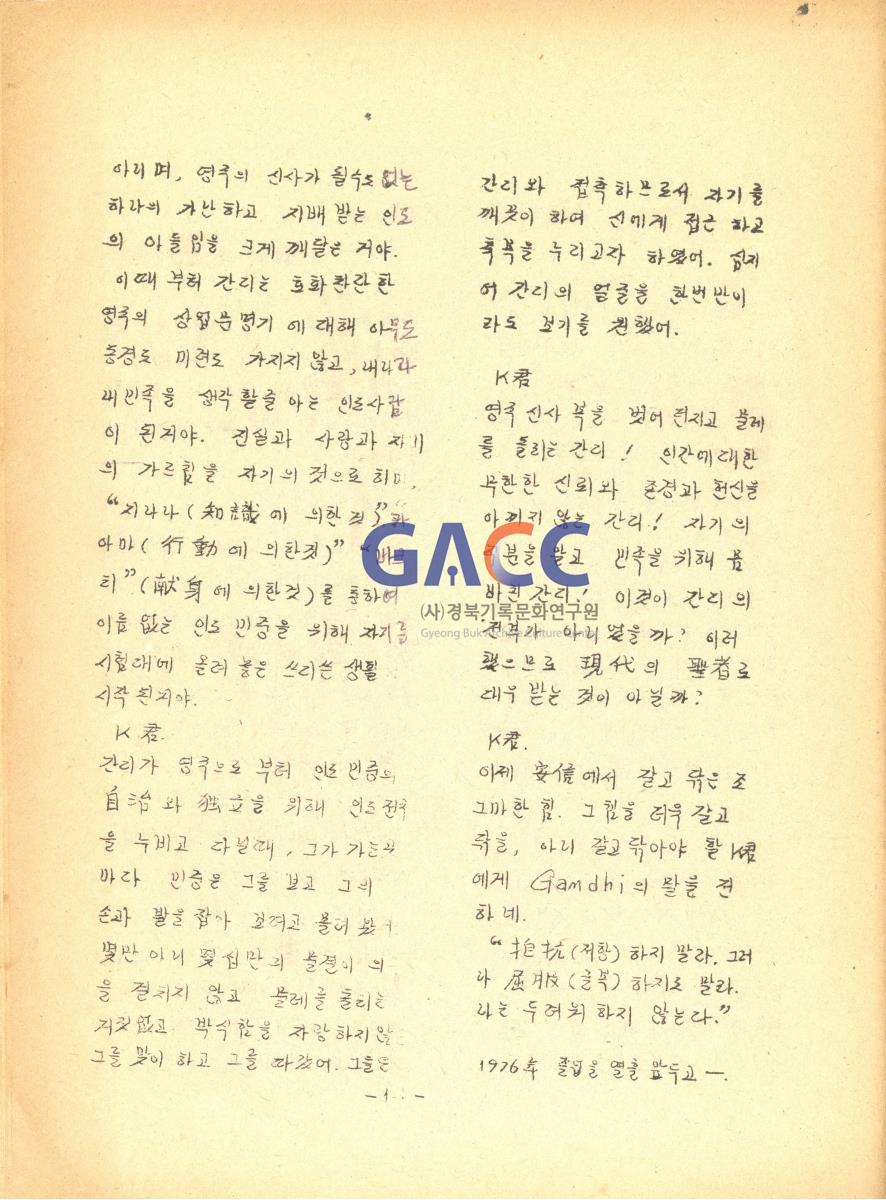 아리며, 영국의 신사가 될수도 없는
하나의 가난하고 지배 받는 인도
의 아들임을 크게 깨달은 거야.
이때 부터 간디는 호화찬란한
영국의 상업문명기에 대해 아무도
동경도 미련도 가지지 않고, 내나라
내민족을 생각 할줄 아는 인도사람
이 된거야. 진실과 사랑과 자기
의 가르침을 자기의 것으로 하며,
"지나나 (知識에 의한것)"
아마 (行動에 의한것)" "바크
티" (献身에 의한것)를 통하여
이름 없는 인도 민중을 위해 자기를
시험대에 올려 놓은 쓰라린 생활
시작 된거야.
K君.
간디가 영국으로 부터 인도 민중의
自治와 独立을 위해 인도 전국
을 누비고 다닐때, 그가 가는곳
마다 민중은 그를 보고 그의
손과 발을 잡아 보려고 몰려 왔
몇만 아니 몇십만의 불결이 의
을 걸치지 않고 물레를 돌리는
거짓없고 박식함을 자랑하지 않
그를 맞이 하고 그를 따랐어. 그들은
간디와 접촉하므로서 자기를
깨끗이 하여 신에게 접근 하고
축복을 누리고자 하였어. 심지
어 간디의 얼굴을 한번만이
라도 보기를 원했어.
K君
영국 신사 복을 벗어 던지고 물레
를 돌리는 간디! 인간에대한
무한한 신뢰와 존경과 헌신을
아끼지 않는 간디! 자기의
분을 알고 민족을 위해 몸
바친 간디! 이것이 간디의
전격가 아니었을까? 이러
했으므로 現代의 聖者로
대우 받는 것이 아닐까?
K君.
이제 安信에서 갈고 닦은 조
그마한 힘. 그 힘을 더욱 갈고
닦을, 아니 갈고 닦아야 할 K君
에게 Gamdhi의 말을 전
하네.
"抵抗(저항) 하지 말라. 그러
나 屈服(굴복) 하지도 말라.
나는 두려워 하지 않는다."
1976年 졸업을 열흘 앞두고 —.
GACC
(사)경북기록문화연구원